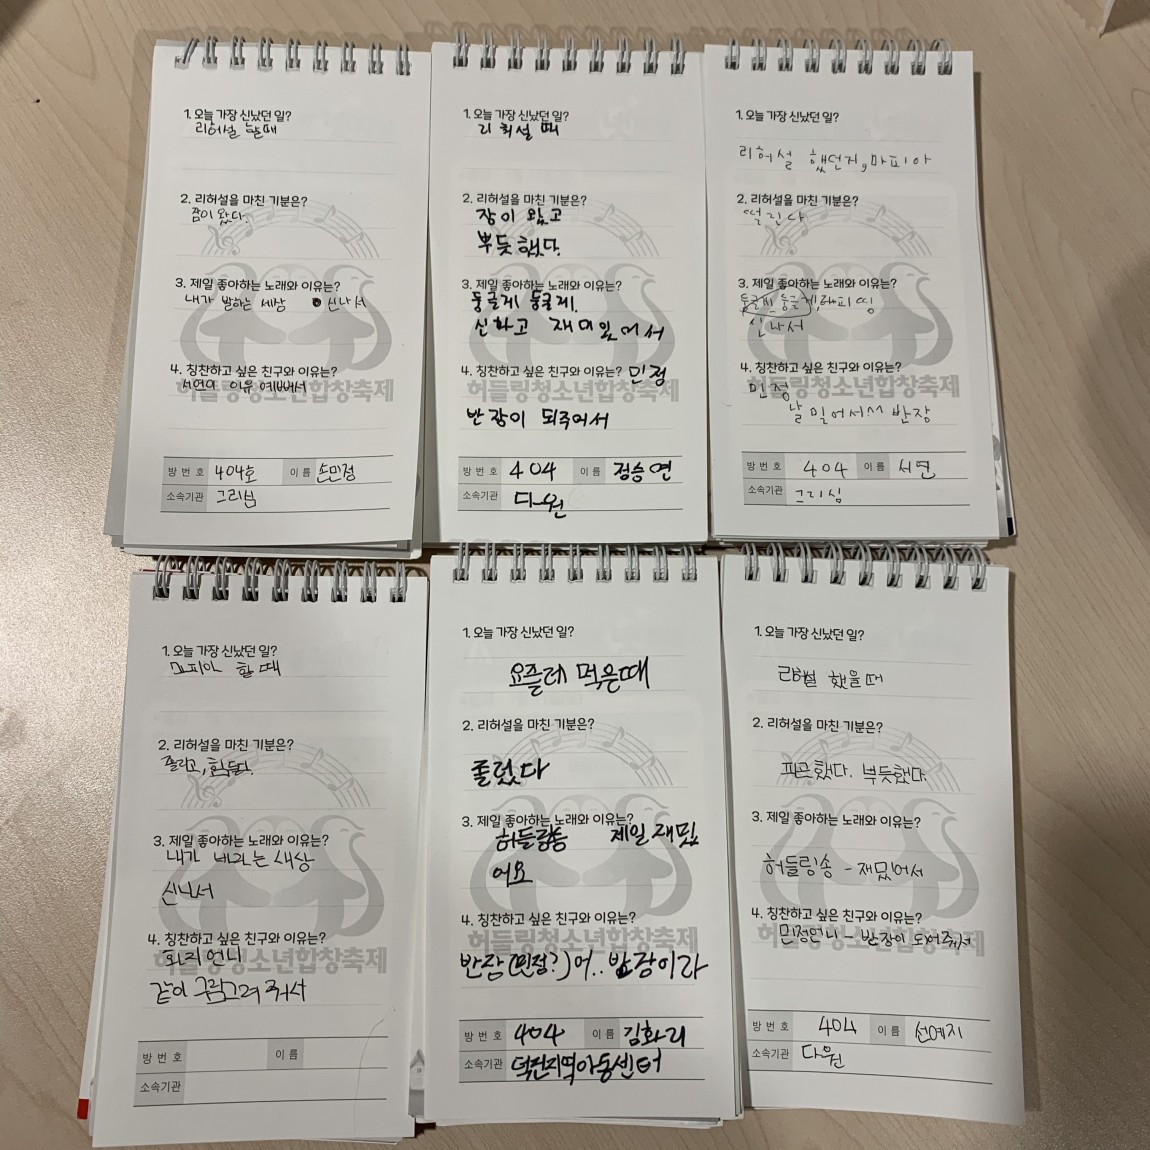 1. 오늘 가장 신났던 일?
리허설 할때
2. 리허설을 마친 기분은?
잠이 왔다.
3. 제일 좋아하는 노래와 이유는?
내가 말하는 세상 신나서
4. 칭찬하고 싶은 친구와 이유는?
서연이 이유 예뻐서
허들링청소년합창축제
방 번 호 404호 이 름 손민정
소속기관
1. 오늘 가장 신났던 일?
리허설 때
2. 리허설을 마친 기분은?
잠이 왔고
뿌듯했다.
3. 제일 좋아하는 노래와 이유는?
둥글게 둥글게.
신하고 재미있어서
4. 칭찬하고 싶은 친구와 이유는? 민정
허들링청소년합창축제
반장이 되주어서
방 번 호 404 이 름 정승연
소속기관 다원
1. 오늘 가장 신났던 일?
리허설 했던거, 마피아
2. 리허설을 마친 기분은?
떨린다
3. 제일 좋아하는 노래와 이유는?
둥글게 둥글게,
신나서
4. 칭찬하고 싶은 친구와 이유는?
허들링청소년합창축제
민정
날 밀어서^^ 반장
방 번 호 404 이 름 서연
소속기관
1. 오늘 가장 신났던 일?
마피아 할 때
2. 리허설을 마친 기분은?
졸리고, 힘들다.
3. 제일 좋아하는 노래와 이유는?
내가 바라는 세상
신나서
4. 칭찬하고 싶은 친구와 이유는?
화리언니
허들링청소년합창축제
같이 그림그려 줘서
방 번 호 이 름
소속기관
1. 오늘 가장 신났던 일?
요플레 먹은때
2. 리허설을 마친 기분은?
졸렸다
3. 제일 좋아하는 노래와 이유는?
허들링송 제일 재밌
어요
4. 칭찬하고 싶은 친구와 이유는?
허들링청소년합창축제
반장(민정?)어.. 반장이라
방 번 호 404 이 름 김화리
소속기관 덕천지역아동센터
1. 오늘 가장 신났던 일?
리허설 했을때
2. 리허설을 마친 기분은?
피곤했다. 뿌듯했다.
3. 제일 좋아하는 노래와 이유는?
허들링송 - 재밌어서
4. 칭찬하고 싶은 친구와 이유는?
민정언니 - 반장이 되어줘서
허들링청소년합창축제
방 번 호 404 이 름 선예지
소속기관 다원